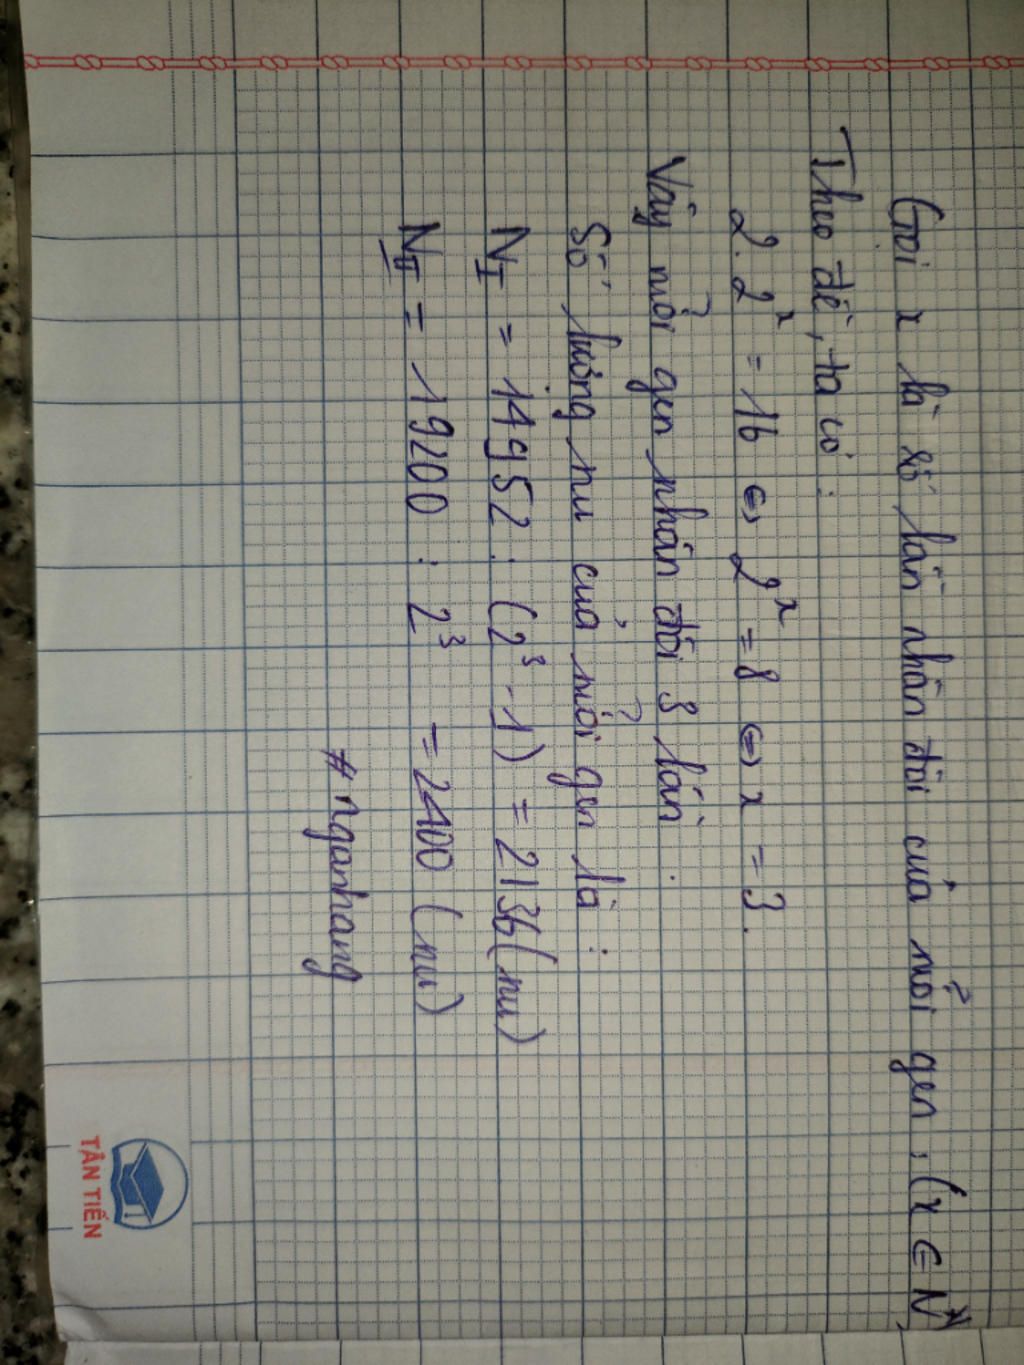 Gọi x là số lần nhân đôi của mỗi gen, (x ∈ N*)
Theo đề, ta có:
2.2ˣ = 16 ⇔ 2ˣ = 8 ⇔ x = 3.
Vậy mỗi gen nhân đôi 3 lần.
Số lượng nu của mỗi gen là:
N_I = 14952 : (2³ - 1) = 2136 (nu)
N_II = 19200 : 2³ = 2400 (nu)
# nganhang
TÂN TIẾN